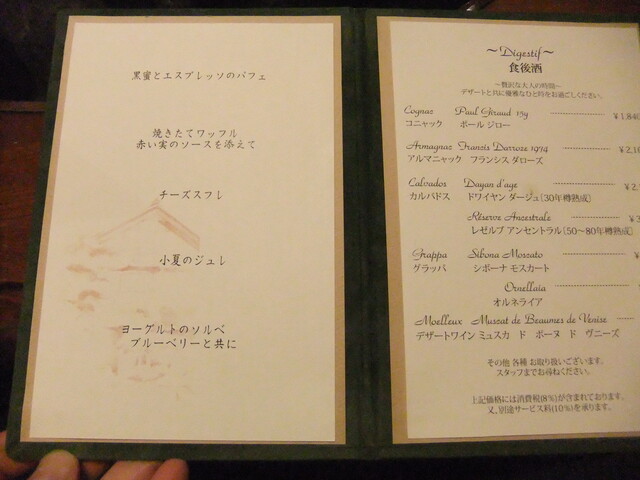 黒蜜とエスプレッソのパフェ
焼きたてワッフル
赤い実のソースを添えて
チーズスフレ
小夏のジュレ
ヨーグルトのソルベ
ブルーベリーと共に
～Digestif～
食後酒
～贅沢な大人の時間～
デザートと共に優雅なひと時をお過ごしください。
Cognac Paul Giraud 15y ¥1,840
コニャック ポール ジロー
Armagnac Francis Darroze 1974 ¥2,10
アルマニャック フランシス ダローズ
Calvados Doyan d'age ¥2,
カルバドス ドワイヤン ダージュ〔30年樽熟成〕
Réserve Ancestrale ¥3
レゼルブ アンセントラル〔50～80年樽熟成〕
Grappa Sibona Moscato ¥
グラッパ シボーナ モスカート
Ornellaia
オルネライア
Moelleux Muscat de Beaumes de Venise
デザートワイン ミュスカ ド ボーヌ ド ヴニーズ
その他 各種 お取り扱いございます。
スタッフまでお尋ねください。
上記価格には消費税(8%)が含まれております。
又、別途サービス料(10%)を承ります。